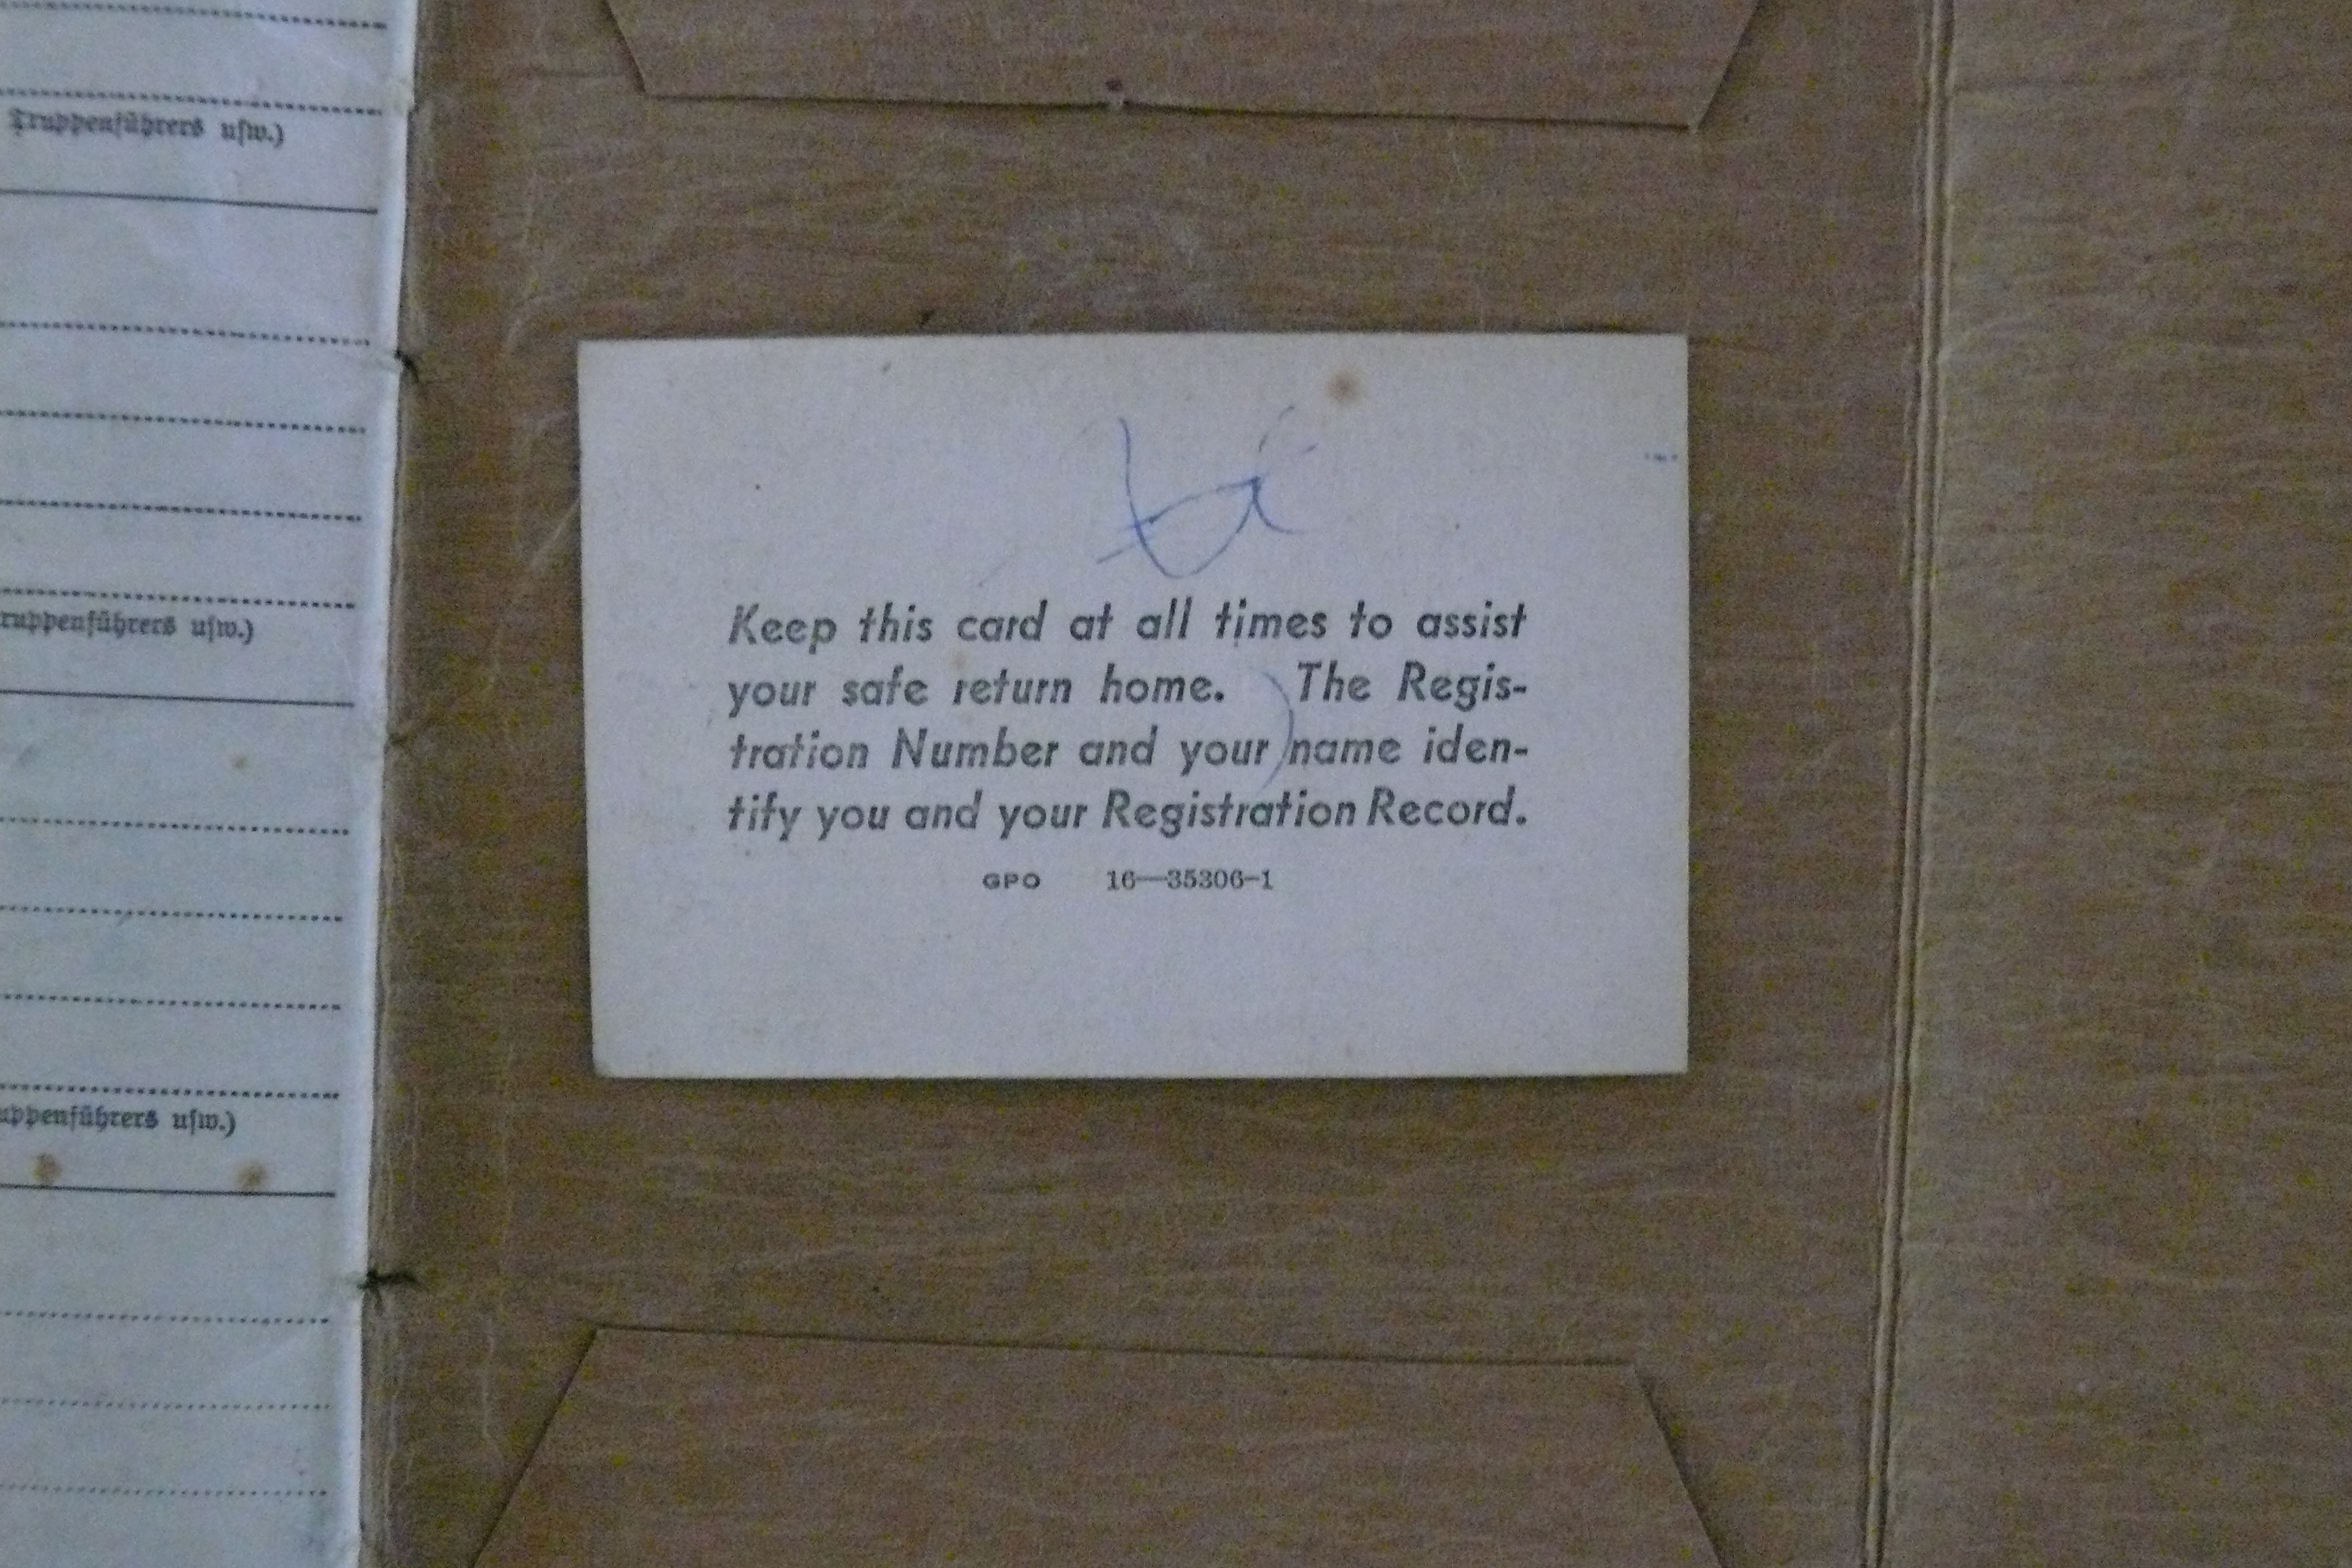 Truppenführers usw.)
ruppenführers usw.)
uppenführers usw.)
Keep this card at all times to assist
your safe return home. The Regis-
tration Number and your name iden-
tify you and your Registration Record.
GPO 16—35306-1